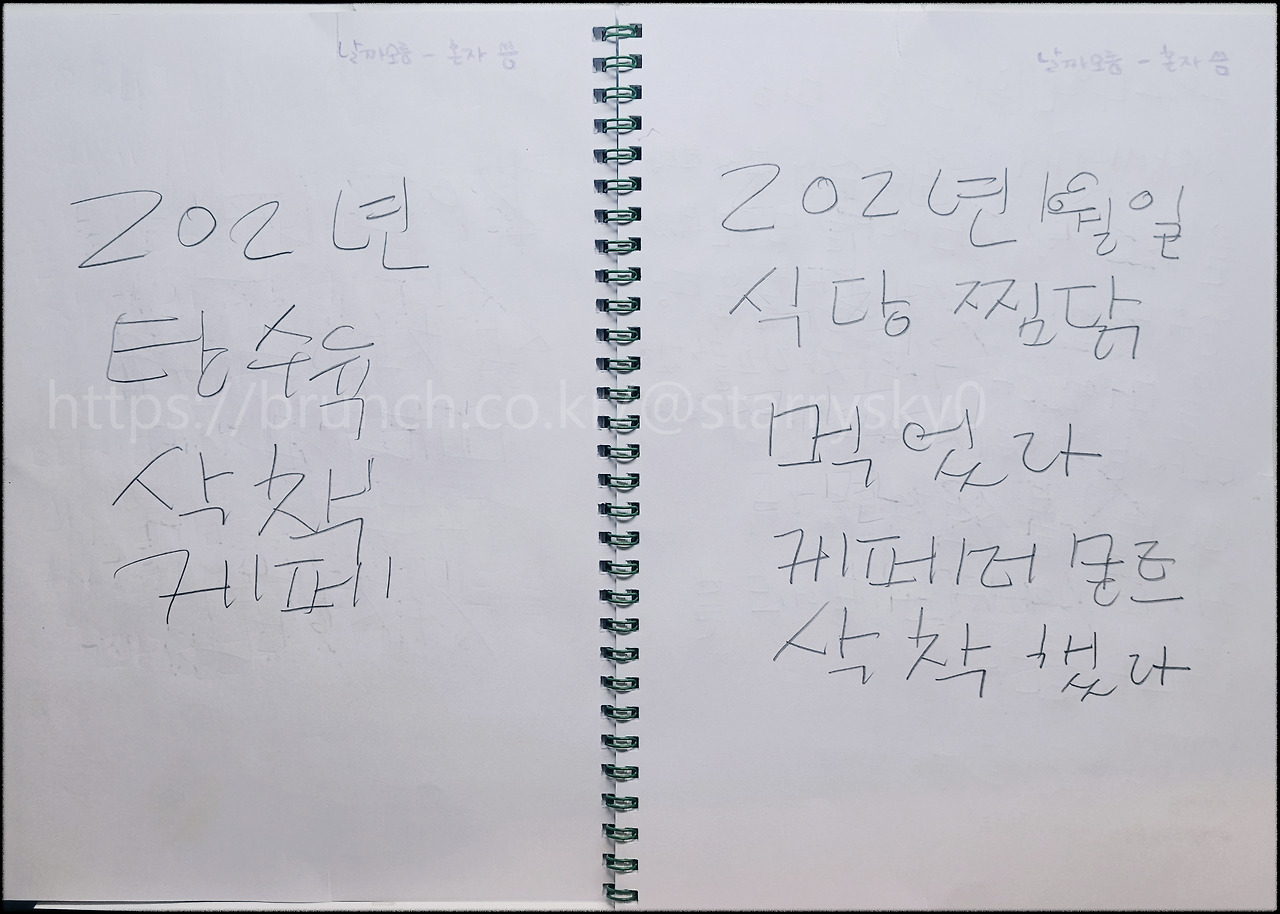 날짜모름 - 혼자 씀
202년
탕수육
삭책
케페
날짜모름 - 혼자 씀
202년 1월일
식당 찜닭
먹었다
케페더몰드
삭착했다
https://brunch.co.kr/@starrysky0